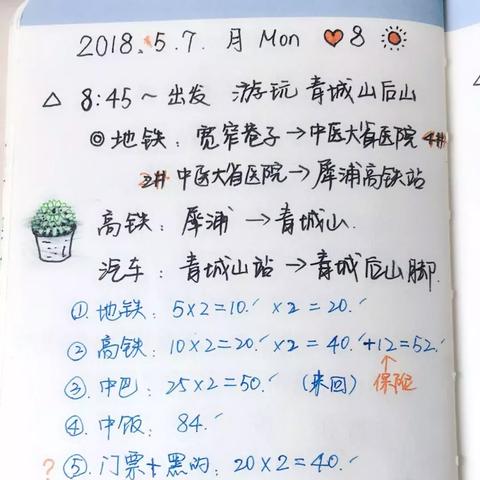 2018.5.7. 月 Mon ♥8 ☀
△ 8:45～出发 游玩 青城山后山
◎地铁：宽窄巷子→中医大省医院 4#
2# 中医大省医院→犀浦高铁站
高铁：犀浦→青城山.
汽车：青城山站→青城后山脚.
①.地铁：5×2=10.✓ ×2=20.✓
②高铁：10×2=20.✓ ×2=40.✓+12=52.✓
③.中巴：25×2=50.✓ (来回) 保险
④.中饭：84.✓
? ⑤.门票+黑的：20×2=40.✓